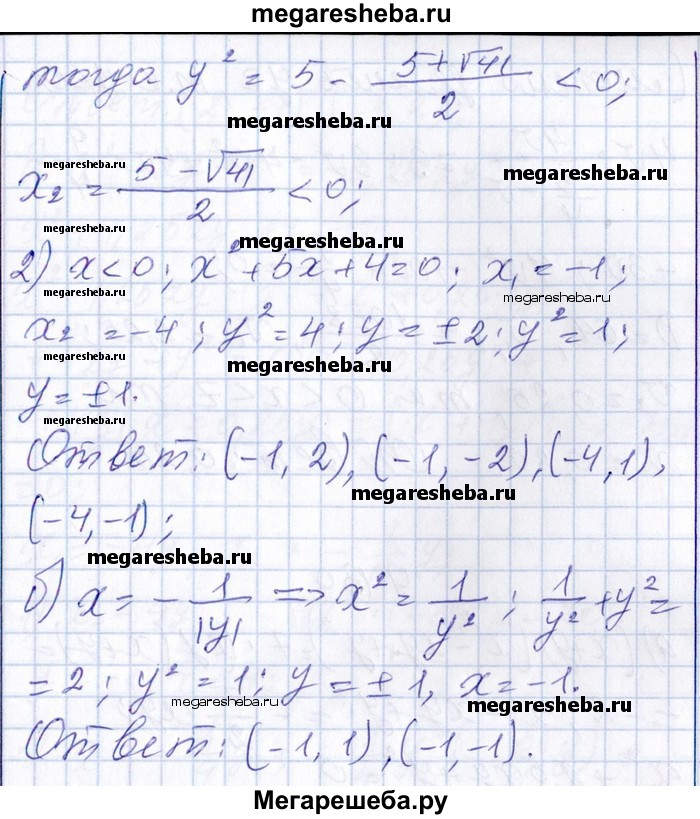 megaresheba.ru
тогда y² = 5 - (5+√41)/2 < 0;
megaresheba.ru
megaresheba.ru
x₂ = (5-√41)/2 < 0;
megaresheba.ru
megaresheba.ru
megaresheba.ru
2) x<0; x²+5x+4=0; x₁=-1;
megaresheba.ru
megaresheba.ru
x₂ = -4; y²=4; y=±2; y²=1;
megaresheba.ru
megaresheba.ru
y=±1.
megaresheba.ru
Ответ: (-1, 2), (-1, -2), (-4, 1),
megaresheba.ru
(-4,-1);
megaresheba.ru
б) x = - 1/|y| => x² = 1/y²; 1/y² + y² =
= 2; y² = 1; y = ±1, x = -1.
megaresheba.ru
megaresheba.ru
Ответ: (-1, 1), (-1, -1).
Мегарешеба.ру